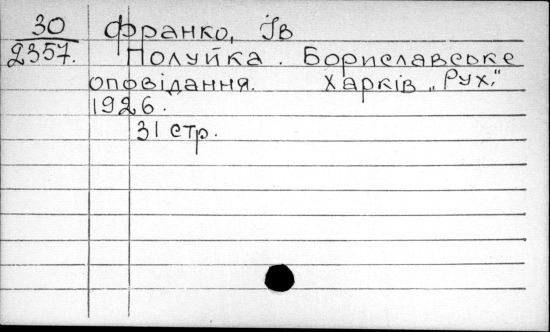 30 Франко, Ів
2357. Полуйка. Бориславське
оповідання. Харків „Рух."
1926.
31 стр.